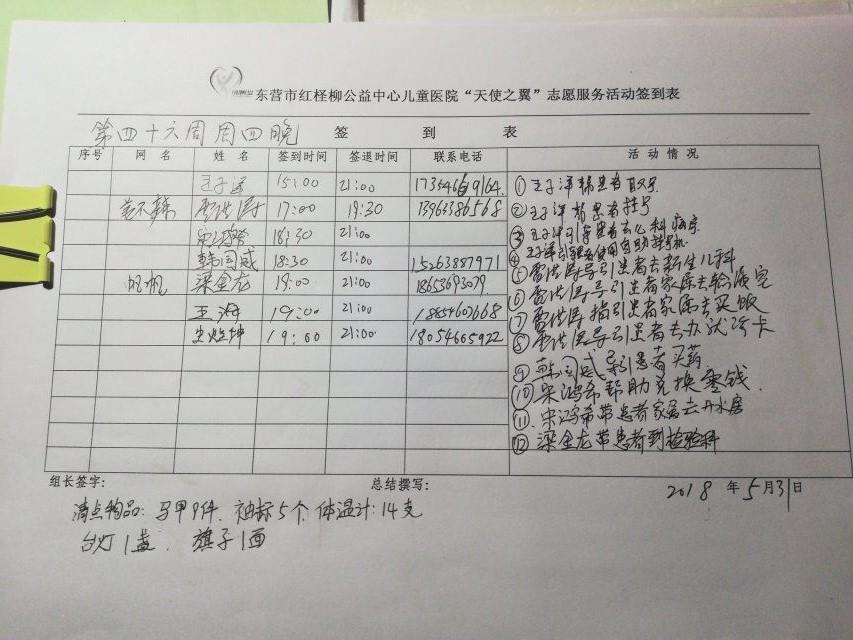 东营市红柽柳公益中心儿童医院“天使之翼”志愿服务活动签到表
第四十六周周四晚 签到表
序号 网名 姓名 签到时间 签退时间 联系电话 活动情况
王子洋 15:00 21:00
17:00 19:30 13963386568
宋鸿希 18:30 21:00
韩国威 18:30 21:00 15263887971
帆帆 梁金龙 19:00 21:00 18653693079
王海 19:00 21:00 18854607668
19:00 21:00 18054605922
①王子洋帮患者取号
②王子洋帮患者挂号
③王子洋引导患者去儿科病房
④王子洋引导患者使用自助挂号机
⑤雷洪涛导引患者去新生儿科
⑥雷洪涛导引患者家属去输液室
⑦雷洪涛指引患者家属去买饭
⑧雷洪涛导引患者去办就诊卡
⑨韩国威导引患者买药
⑩宋鸿希帮助兑换零钱.
⑪宋鸿希带患者家属去开水房
⑫梁金龙带患者到检验科
组长签字: 总结撰写: 2018年5月31日
清点物品: 马甲9件. 袖标5个. 体温计:14支
台灯1盏. 旗子1面